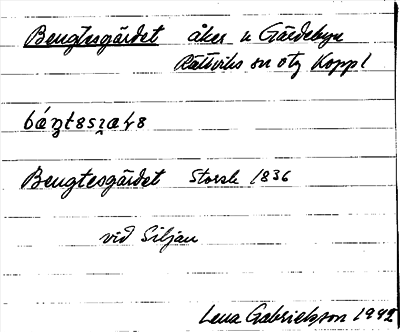 Bengtesgärdet åker u Gärdebyn
Rättviks sn otg Koppl
Bengtesgärdet Storsk 1836
vid Siljan
Lena Gabrielsson 1992